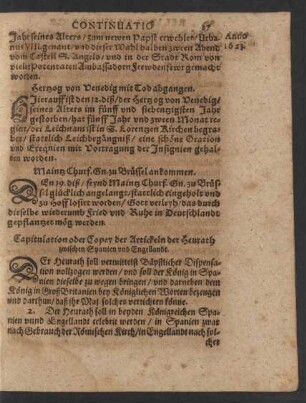 CONTINUATIO 57
Jahr seines Alters / zum newen Papst erwehlet / Urba-
nus VIII. genant / und dieser Wahl halben zween Abend
vom Castell S. Angelo / und in der Stadt Rom von
vielen Potentaten Ambassadorn Frewdenfewr gemacht
worden.
Anno
1623.
Hertzog von Venedig mit Tod abgangen.
HIerauff ist den 12. diß / der Hertzog von Venedig /
seines Alters im fünff und siebentzigsten Jahr
gestorben / hat fünff Jahr und zween Monat re-
giert / der Leichnam ist in S. Lorentzen Kirchen begra-
ben / stattlich Leichbegängniß / eine schöne Oration
und Exequien mit Vortragung der Insignien gehal-
ten worden.
Maintz Churf. Gn. zu Brüssel ankommen.
DEn 19. diß / seynd Maintz Churf. Gn. zu Brüs-
sel glücklich angelangt / stattlich eingeholt und
zu Hoff losirt worden / Gott verleyh / das durch
dieselbe wiederumb Fried und Ruhe in Deutschlandt
gepflantzet mög werden.
Capitulation oder Copey der Artickeln der Heurath
zwischen Spanien und Engellandt.
DEr Heurath soll vermittelst Bäpstlicher Dispensa-
tion vollzogen werden / und soll der König in Spa-
nien dieselbe zu wegen bringen / und darneben dem
König in Groß Britanien bey Königlichen Worten bezeugen
und darthun / daß ihr May. solches verrichten könne.
2. Der Heurath soll in beyden Königreichen Spa-
nien unnd Engellandt celebrirt werden / in Spanien zwar
nach Gebrauch der Römischen Kirch / in Engellandt nach sol-
cher